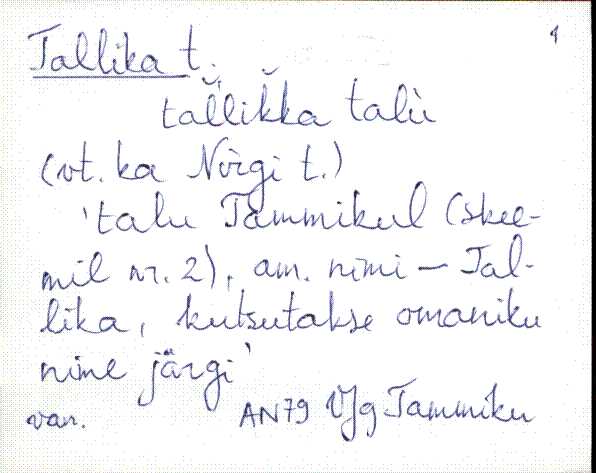 4
Tallika t.
tal̆lik̆ka talù
(vt. ka Nõrgi t.)
'talu Tammikul (skee-
mil nr. 2), am. nimi – Tal-
lika, kutsutakse omaniku
nime järgi'
van. AN79 VJg Tammiku